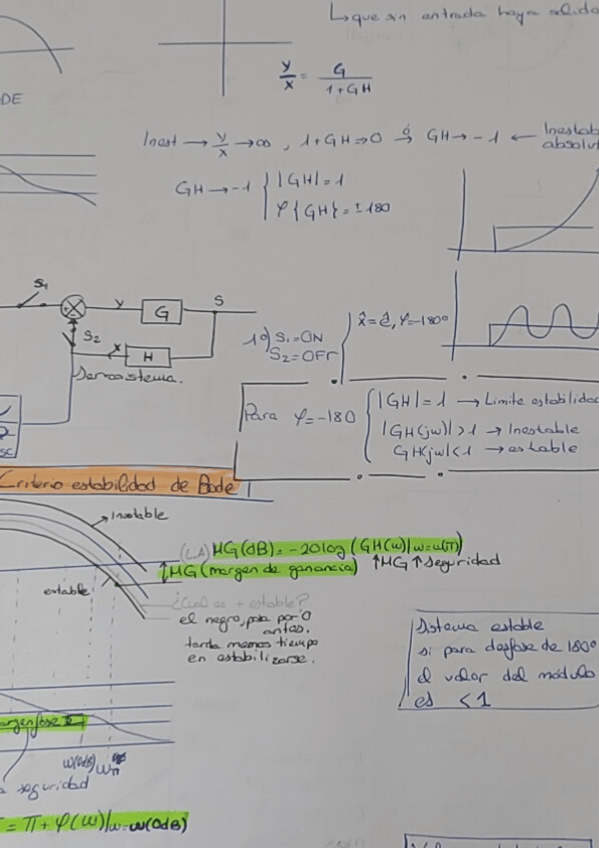 ↳que sin entrada haya salida
y/x = G/(1+GH)
DE
Inest → y/x → ∞, 1+GH → 0 ó→ GH → -1 ← Inestab
absolut
GH → -1 { |GH| = 1
φ{GH} = ±180
S1
S2
y
G
S
x
H
Servosistema.
1º) S1=ON
S2=OFF
x̂ = ê, φ=-180º
Para φ=-180 { |GH| = 1 → Limite estabilidad
|GH(jw)| > 1 → Inestable
GH(jw) < 1 → estable
Criterio estabilidad de Bode
Inestable
(L.A) MG(dB) = -20log (GH(w)|w=w(π)
↕MG (margen de ganancia) ↑MG ↑Seguridad
estable
¿Cual es + estable?
el negro, pasa por 0
antes.
tarda menos tiempo
en estabilizarse.
Sistema estable
si para desfase de 180º
el valor del módulo
es < 1
argen fase
w(0dB) wπ
seguridad
= π + φ(w)|w=w(0dB)